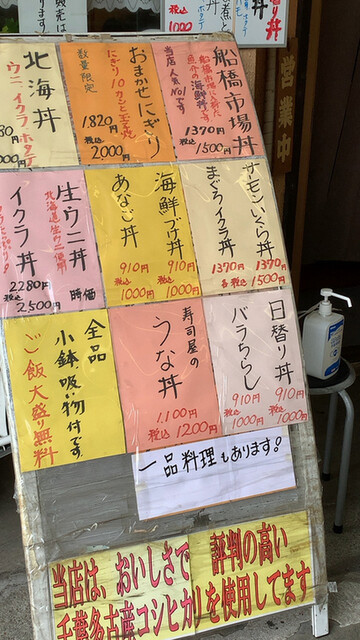 船橋市場丼
船橋市場に新た
魚介の海鮮丼です
当店人気No.1です
1370円
税込 1500円
おまかせにぎり
にぎり10カン玉子丸
数量限定
1.820
税込 2000円
北海丼
ウニイクラホタテ
サーモンいくら丼
1370円
まぐろイクラ丼
1370円
各 税込 1500円
海鮮づけ丼
910円
税込 1000円
あなご丼
910円
税込 1000円
生ウニ丼
北海道生ウニ使用
時価
イクラ丼
2280円
税込 2,500円
日替り丼
910円
税込 1000円
バラちらし
910円
税込 1000円
寿司屋の
うな丼
1.100円
税込 1200円
全品
小鉢、吸い物付です。
ご飯大盛り無料
一品料理もあります!
当店は、おいしさで評判の高い
千葉多古産コシヒカリを使用してます